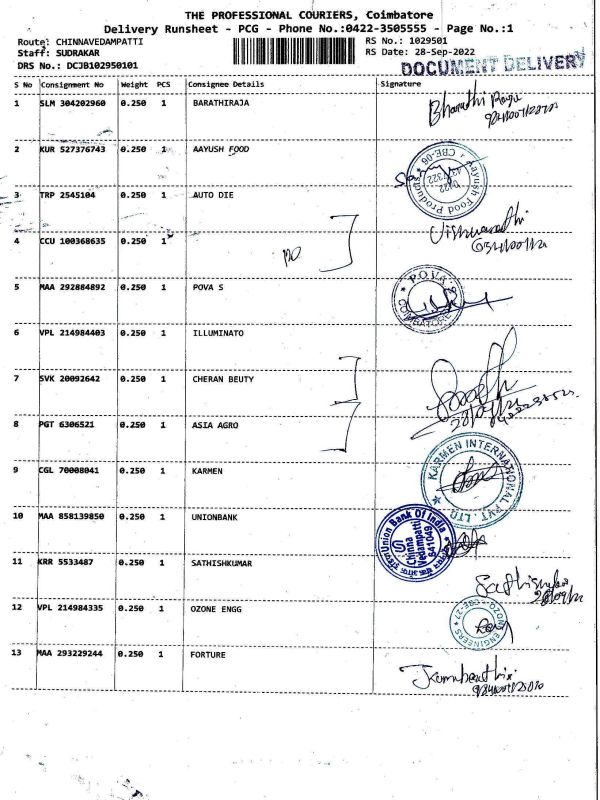 THE PROFESSIONAL COURIERS, Coimbatore
Delivery Runsheet - PCG - Phone No.:0422-3505555 - Page No.:1
Route: CHINNAVEDAMPATTI
RS No.: 1029501
Staff: SUDRAKAR
RS Date: 28-Sep-2022
DRS No.: DCJB102950101
DOCUMENT DELIVERY
S No Consignment No Weight PCS Consignee Details Signature
1 SLM 304202960 0.250 1 BARATHIRAJA
2 KUR 527376743 0.250 1 AAYUSH FOOD
Aayush Food Products CBE-06
3 TRP 2545104 0.250 1 AUTO DIE
4 CCU 100368635 0.250 1
5 MAA 292884892 0.250 1 POVA S
P.O.V.A. COIMBATORE
6 VPL 214984403 0.250 1 ILLUMINATO
7 SVK 20092642 0.250 1 CHERAN BEUTY
8 PGT 6306521 0.250 1 ASIA AGRO
9 CGL 70008041 0.250 1 KARMEN
KARMEN INTERNATIONAL PVT. LTD
10 MAA 858139850 0.250 1 UNIONBANK
Union Bank Of India
Chinna
Vedampatti
641049
11 KRR 5533487 0.250 1 SATHISHKUMAR
12 VPL 214984335 0.250 1 OZONE ENGG
ENGINEERS CBE-27
13 MAA 293229244 0.250 1 FORTURE